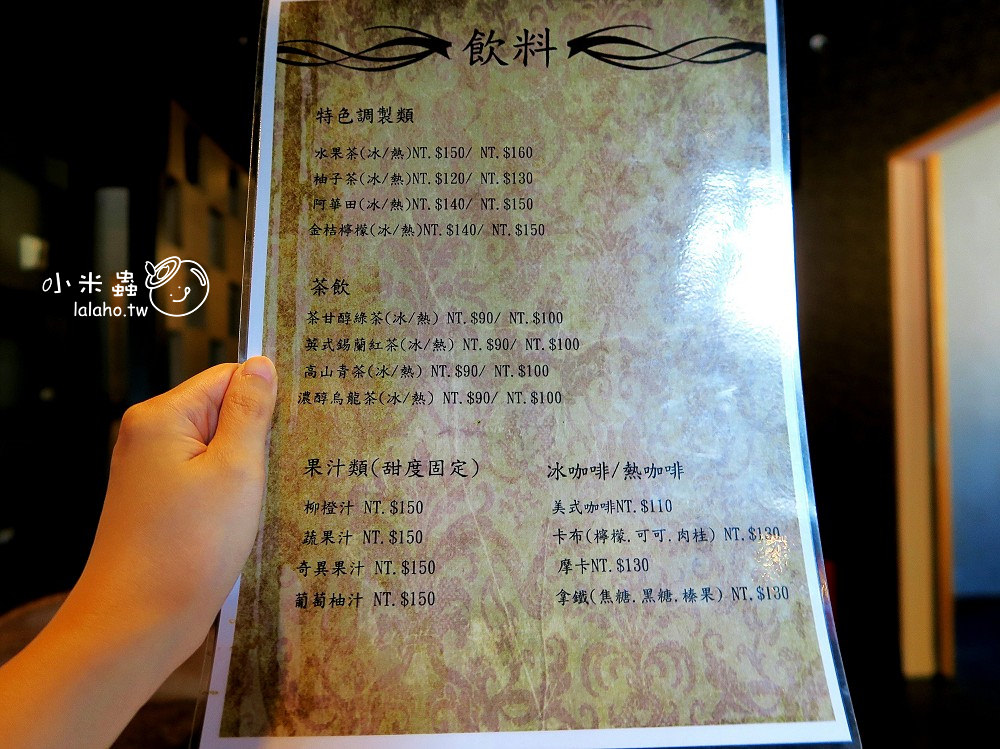 飲料
特色調製類
水果茶(冰/熱)NT.$150/ NT.$160
柚子茶(冰/熱)NT.$120/ NT.$130
阿華田(冰/熱)NT.$140/ NT.$150
金桔檸檬(冰/熱)NT.$140/ NT.$150
茶飲
茶甘醇綠茶(冰/熱) NT.$90/ NT.$100
英式錫蘭紅茶(冰/熱) NT.$90/ NT.$100
高山青茶(冰/熱) NT.$90/ NT.$100
濃醇烏龍茶(冰/熱) NT.$90/ NT.$100
果汁類(甜度固定)
柳橙汁 NT.$150
蔬果汁 NT.$150
奇異果汁 NT.$150
葡萄柚汁 NT.$150
冰咖啡/熱咖啡
美式咖啡NT.$110
卡布(檸檬.可可.肉桂) NT.$130
摩卡NT.$130
拿鐵(焦糖.黑糖.榛果) NT.$130
小米蟲
lalaho.tw